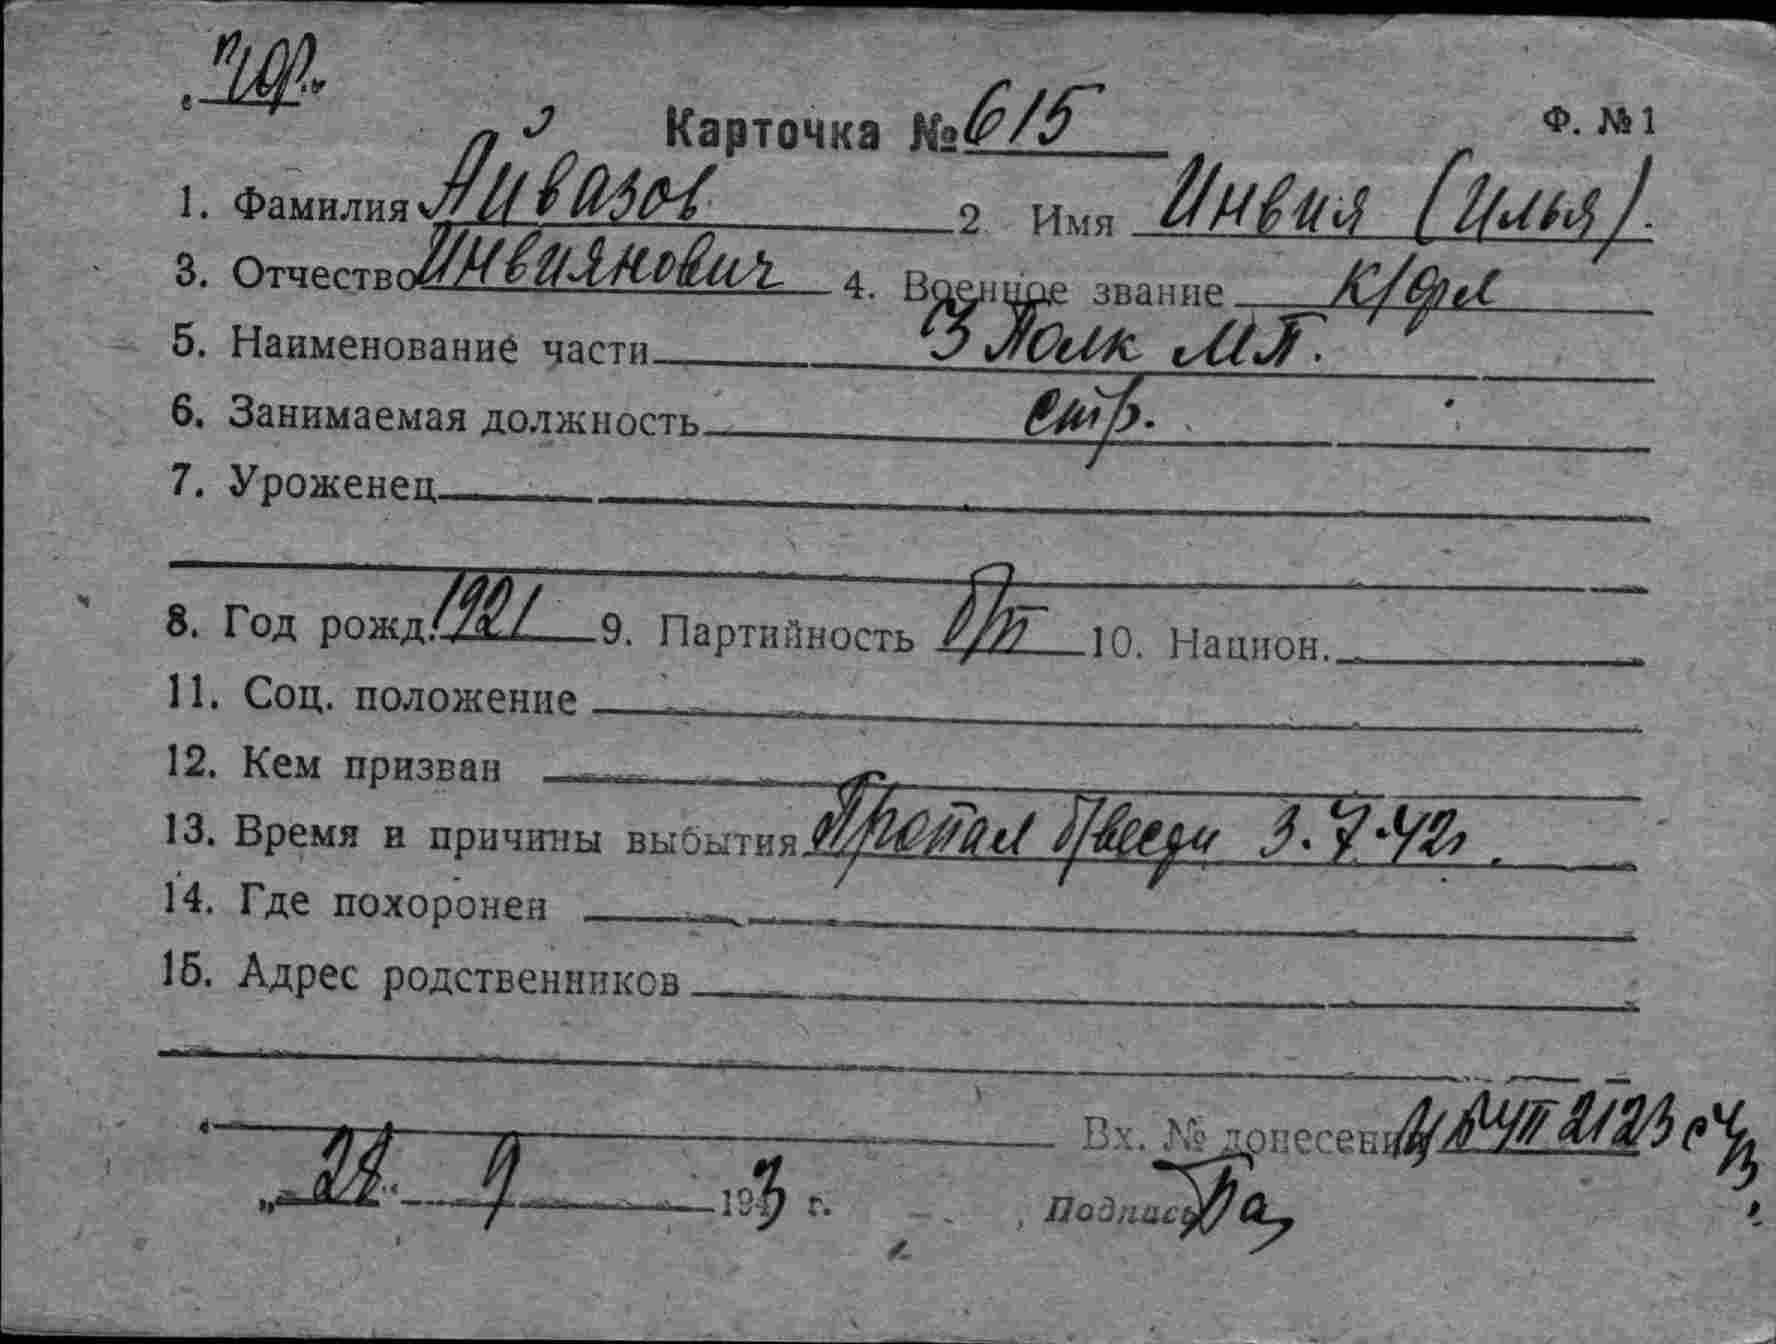 чор.
Карточка № 615
Ф. № 1
1. Фамилия Айвазов 2 Имя Инвия (Илья).
3. Отчество Инвиянович 4. Военное звание к/фл
5. Наименование части 3 Полк МП.
6. Занимаемая должность стр.
7. Уроженец
8. Год рожд. 1921 9. Партийность б/п 10. Национ.
11. Соц. положение
12. Кем призван
13. Время и причины выбытия Пропал б/вести 3.7.42г.
14. Где похоронен
15. Адрес родственников
Вх. № донесения 2123
„28“ 9 1943 г. Подпись